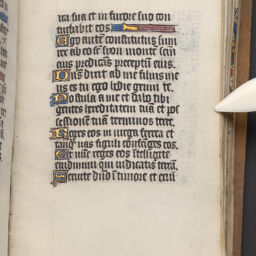 ira sua et in furore suo con
turbabit eos
Ego aute constitutus sum
rex ab eo sr syon monte scm
eius predicas preceptu eius.
Dns dixit ad me filius me
us es tu ego hodie genui te.
Postula a me et dabo tibi
gentes hereditatem tua et pos
sessione tuam terminos terre.
Reges eos in virga ferrea et
tanq vas figuli confriges eos.
Et nuc reges eos itelligite
erudimini qui iudicatis terra.
Servite dno i timore et exul